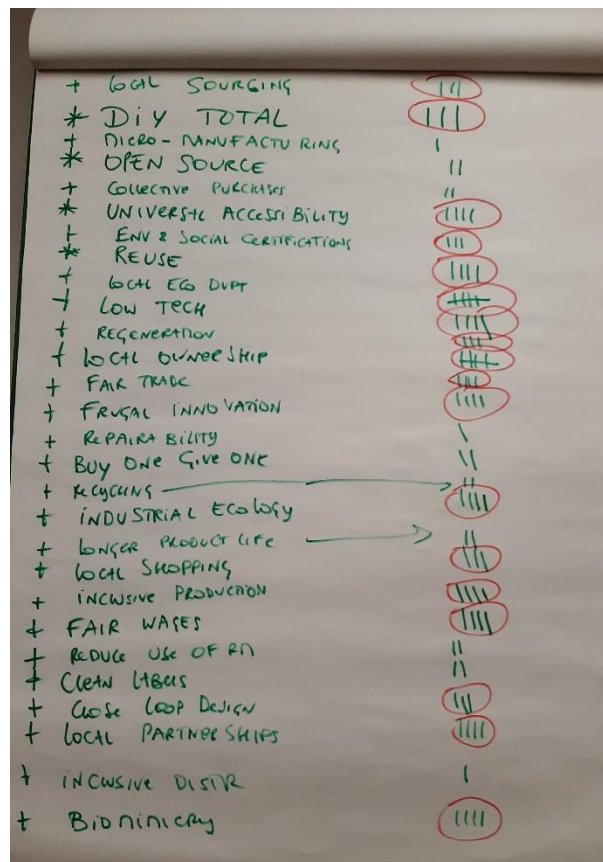 + LOCAL SOURCING III
* DIY TOTAL III
+ MICRO-MANUFACTURING I
* OPEN SOURCE II
+ COLLECTIVE PURCHASES II
* UNIVERSAL ACCESSIBILITY IIII
+ ENV & SOCIAL CERTIFICATIONS III
* REUSE IIII
+ LOCAL ECO DVPT
+ LOW TECH
+ REGENERATION
+ LOCAL OWNERSHIP
+ FAIR TRADE
+ FRUGAL INNOVATION IIII
+ REPAIRABILITY \
+ BUY ONE GIVE ONE \\
+ RECYCLING II
+ INDUSTRIAL ECOLOGY IIII
+ LONGER PRODUCT LIFE II
+ LOCAL SHOPPING
+ INCLUSIVE PRODUCTION IIII
+ FAIR WAGES IIII
+ REDUCE USE OF RM II
+ CLEAN LABELS II
+ CLOSE LOOP DESIGN III
+ LOCAL PARTNERSHIPS IIII
+ INCLUSIVE DISTR I
+ BIOMIMICRY IIII